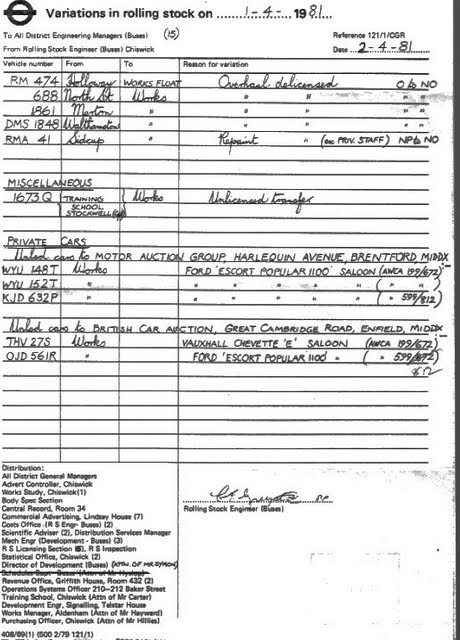 Variations in rolling stock on 1-4- 1981
(15)
To All District Engineering Managers (Buses)
From Rolling Stock Engineer (Buses) Chiswick
Reference 121/1/CGR
Date 2-4-81
Vehicle number From To Reason for variation
RM 474 Holloway WORKS FLOAT Overhaul delicensed O to NO
688 North St Works " " " "
1861 Merton " " " " "
DMS 1848 Walthamstow " " " " "
RMA 41 Sidcup " Repaint " (ex PRIV. STAFF) NP to NO
MISCELLANEOUS
1673Q TRAINING SCHOOL STOCKWELL Works Unlicensed transfer
PRIVATE CARS
Unlcd cars to MOTOR AUCTION GROUP, HARLEQUIN AVENUE, BRENTFORD, MIDDX:-
WYU 148T Works FORD 'ESCORT POPULAR 1100' SALOON (AWCA 199/672)
WYU 152T " " " " " " ( " " )
KJD 632P " " " " " " ( " 599/812)
Unlcd cars to BRITISH CAR AUCTION, GREAT CAMBRIDGE ROAD, ENFIELD, MIDDX:-
THV 27S Works VAUXHALL CHEVETTE 'E' SALOON (AWCA 199/672)
OJD 561R " FORD 'ESCORT POPULAR 1100' " ( " 599/872)
812
Distribution:
All District General Managers
Advert Controller, Chiswick
Works Study, Chiswick (1)
Body Spec Section
Central Record, Room 34
Commercial Advertising, Lindsay House (7)
Costs Office (R S Engr- Buses) (2)
Scientific Adviser (2), Distribution Services Manager
Mech Engr (Development - Buses) (3)
R S Licensing Section (6), R S Inspection
Statistical Office, Chiswick (2)
Director of Development (Buses) (ATTN. OF MR SYMON)
Schedules Dept- Buses (Attn of Mr Hyslop)
Revenue Office, Griffith House, Room 432 (2)
Operations Systems Officer 210-212 Baker Street
Training School, Chiswick (Attn of Mr Carter)
Development Engr, Signalling, Telstar House
Works Manager, Aldenham (Attn of Mr Hayward)
Purchasing Officer, Chiswick (Attn of Mr Hillies)
PP.
Rolling Stock Engineer (Buses)
408/89(1) (500 2/79 121/1)